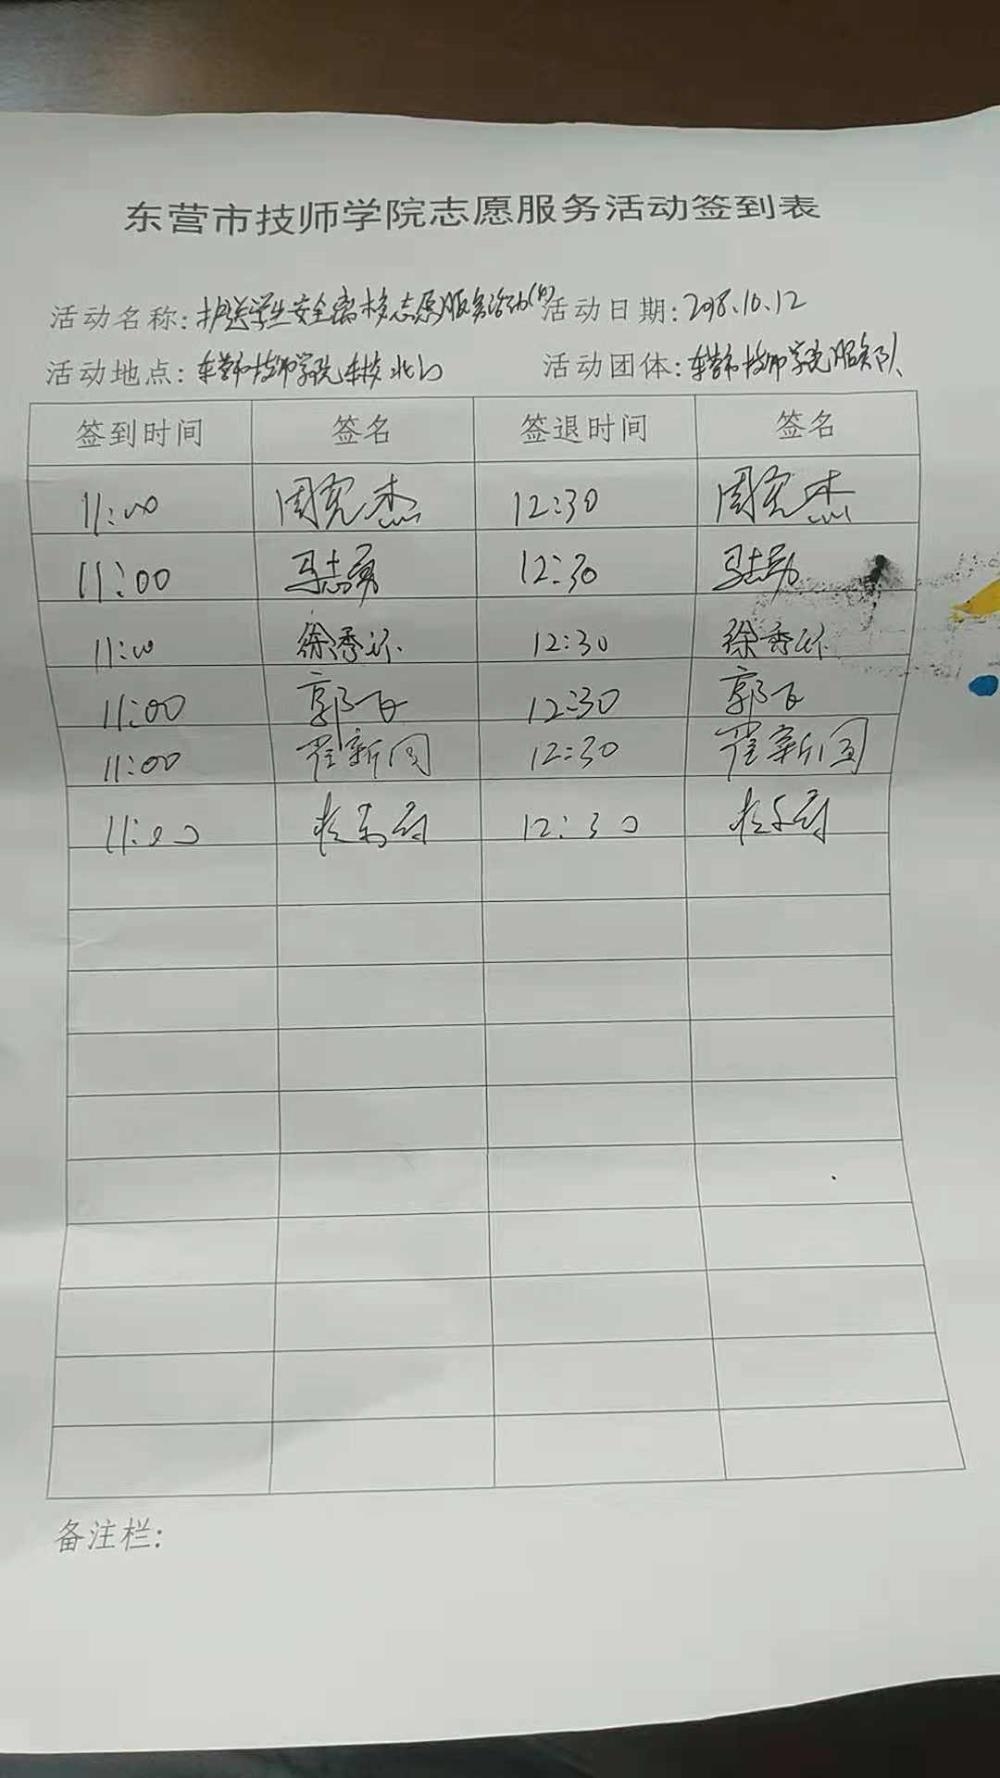 东营市技师学院志愿服务活动签到表
活动名称:护送学生安全离校志愿服务活动 活动日期:2018.10.12
活动地点:东营市技师学院东校北门 活动团体:东营市技师学院服务队
签到时间 签名 签退时间 签名
11:00 周宪杰 12:30 周宪杰
11:00 马志勇 12:30 马志勇
11:00 徐秀 12:30 徐秀
11:00 郭飞 12:30 郭飞
11:00 翟新国 12:30 翟新国
11:00 12:30
备注栏: